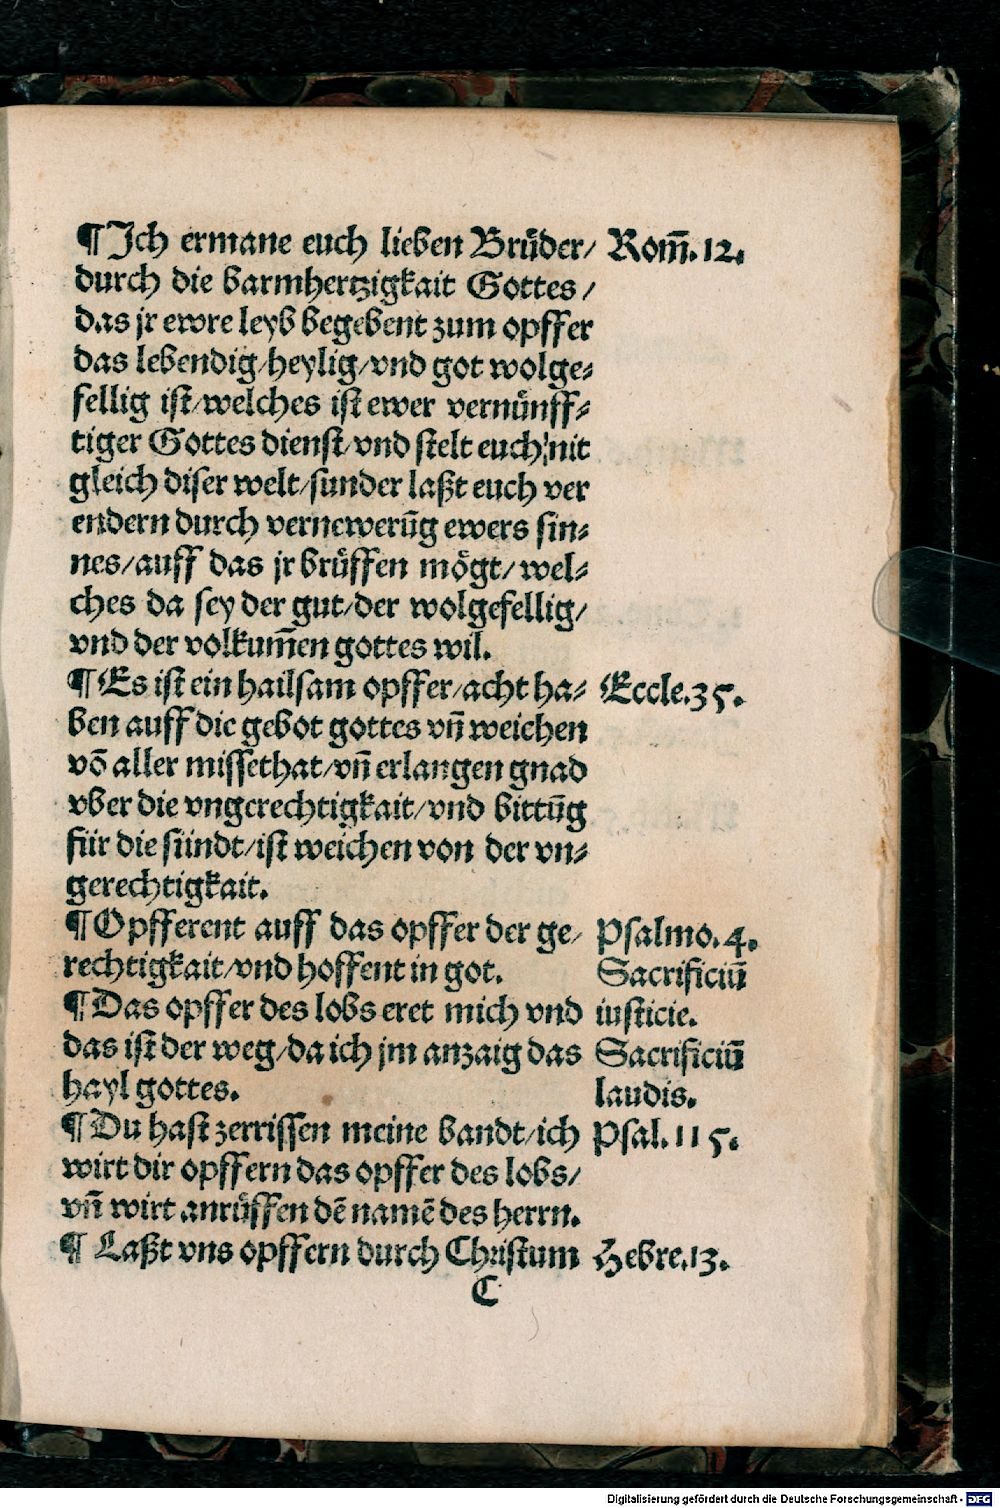 ¶Ich ermane euch lieben Bruͤder/ Rom̃.12.
durch die barmhertzigkait Gottes/
das jr ewre leyb begebent zum opffer
das lebendig/heylig/vnd got wolge⸗
fellig ist/welches ist ewer vernuͤnff⸗
tiger Gottes dienst/vnd stelt euch nit
gleich diser welt/sunder laßt euch ver
endern durch vernewerũg ewers sin⸗
nes/auff das jr bruͤffen moͤgt/wel⸗
ches da sey der gut/der wolgefellig/
vnd der volkum̃en gottes wil.
¶Es ist ein hailsam opffer/acht ha⸗ Eccle.35.
ben auff die gebot gottes vñ weichen
võ aller missethat/vñ erlangen gnad
vber die vngerechtigkait/vnd bittũg
für die sündt/ist weichen von der vn⸗
gerechtigkait.
¶Opfferent auff das opffer der ge/ Psalmo.4.
rechtigkait/vnd hoffent in got. Sacrificiũ
¶Das opffer des lobs eret mich vnd iusticie.
das ist der weg/da ich jm anzaig das Sacrificiũ
hayl gottes. laudis.
¶Du hast zerrissen meine bandt/ich Psal.115.
wirt dir opffern das opffer des lobs/
vñ wirt anruͤffen dẽ namẽ des herrn.
¶ Laßt vns opffern durch Christum Hebre.13.
C
Digitalisierung gefördert durch die Deutsche Forschungsgemeinschaft - DFG